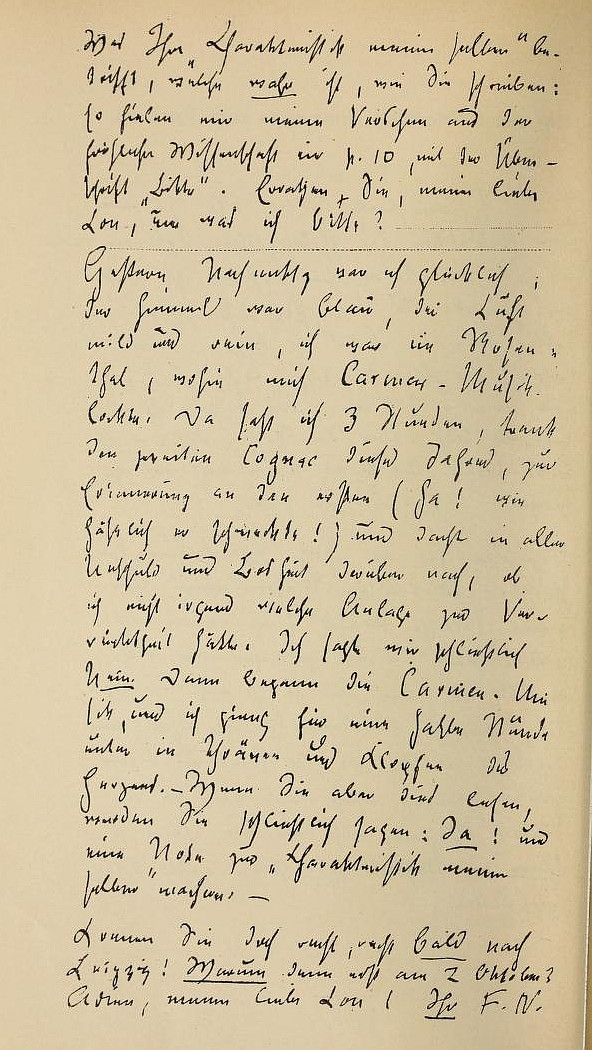 Was Ihre „Charakteristik meiner selber“ be-
trifft, welche wahr ist, wie Sie schreiben:
so fielen mir meine Verschen aus der
fröhlichen Wissenschaft ein p. 10, mit der Über-
schrift „Bitte“. Errathen Sie, meine liebe
Lou, um was ich bitte?
Gestern Nachmittag war ich glücklich;
der Himmel war blau, die Luft
mild und rein, ich war im Rosen-
thal, wohin mich Carmen-Musik
lockte. Da saß ich 3 Stunden, trank
den zweiten Cognac dieses Jahres, zur
Erinnerung an den ersten (ha! wie
häßlich er schmeckte!) und dachte in aller
Unschuld und Bosheit darüber nach, ob
ich nicht irgend welche Anlage zur Ver-
rücktheit hätte. Ich sagte mir schließlich
Nein. Dann begann die Carmen-Mu
sik, und ich gieng für eine halbe Stunde
unter in Thränen und Klopfen des
Herzens. – Wenn Sie aber dies lesen,
werden Sie schließlich sagen: Ja! und
eine Note zur „Charakteristik meiner
selber“ machen. –
Kommen Sie doch recht, recht bald nach
Leipzig! Warum denn erst am 2 Oktober?
Adieu, meine liebe Lou! Ihr F. N.